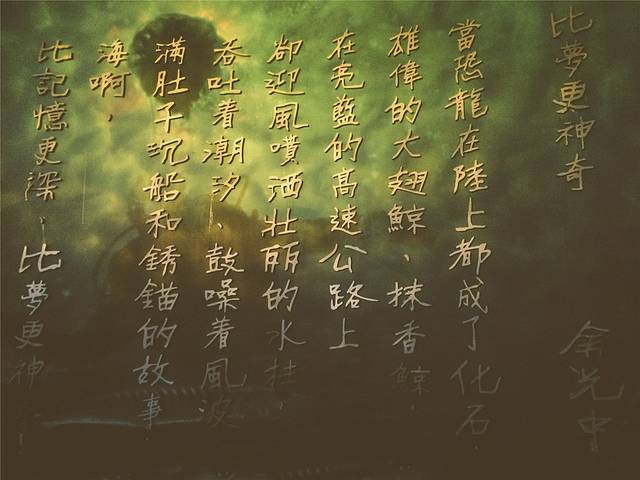 比夢更神奇
余光中
當恐龍在陸上都成了化石,
雄偉的大翅鯨、抹香鯨,
在亮藍的高速公路上
卻迎風噴洒壮丽的水柱,
吞吐着潮汐、鼓噪着風波
滿肚子沉船和銹錨的故事
海啊,
比記憶更深,比夢更神奇